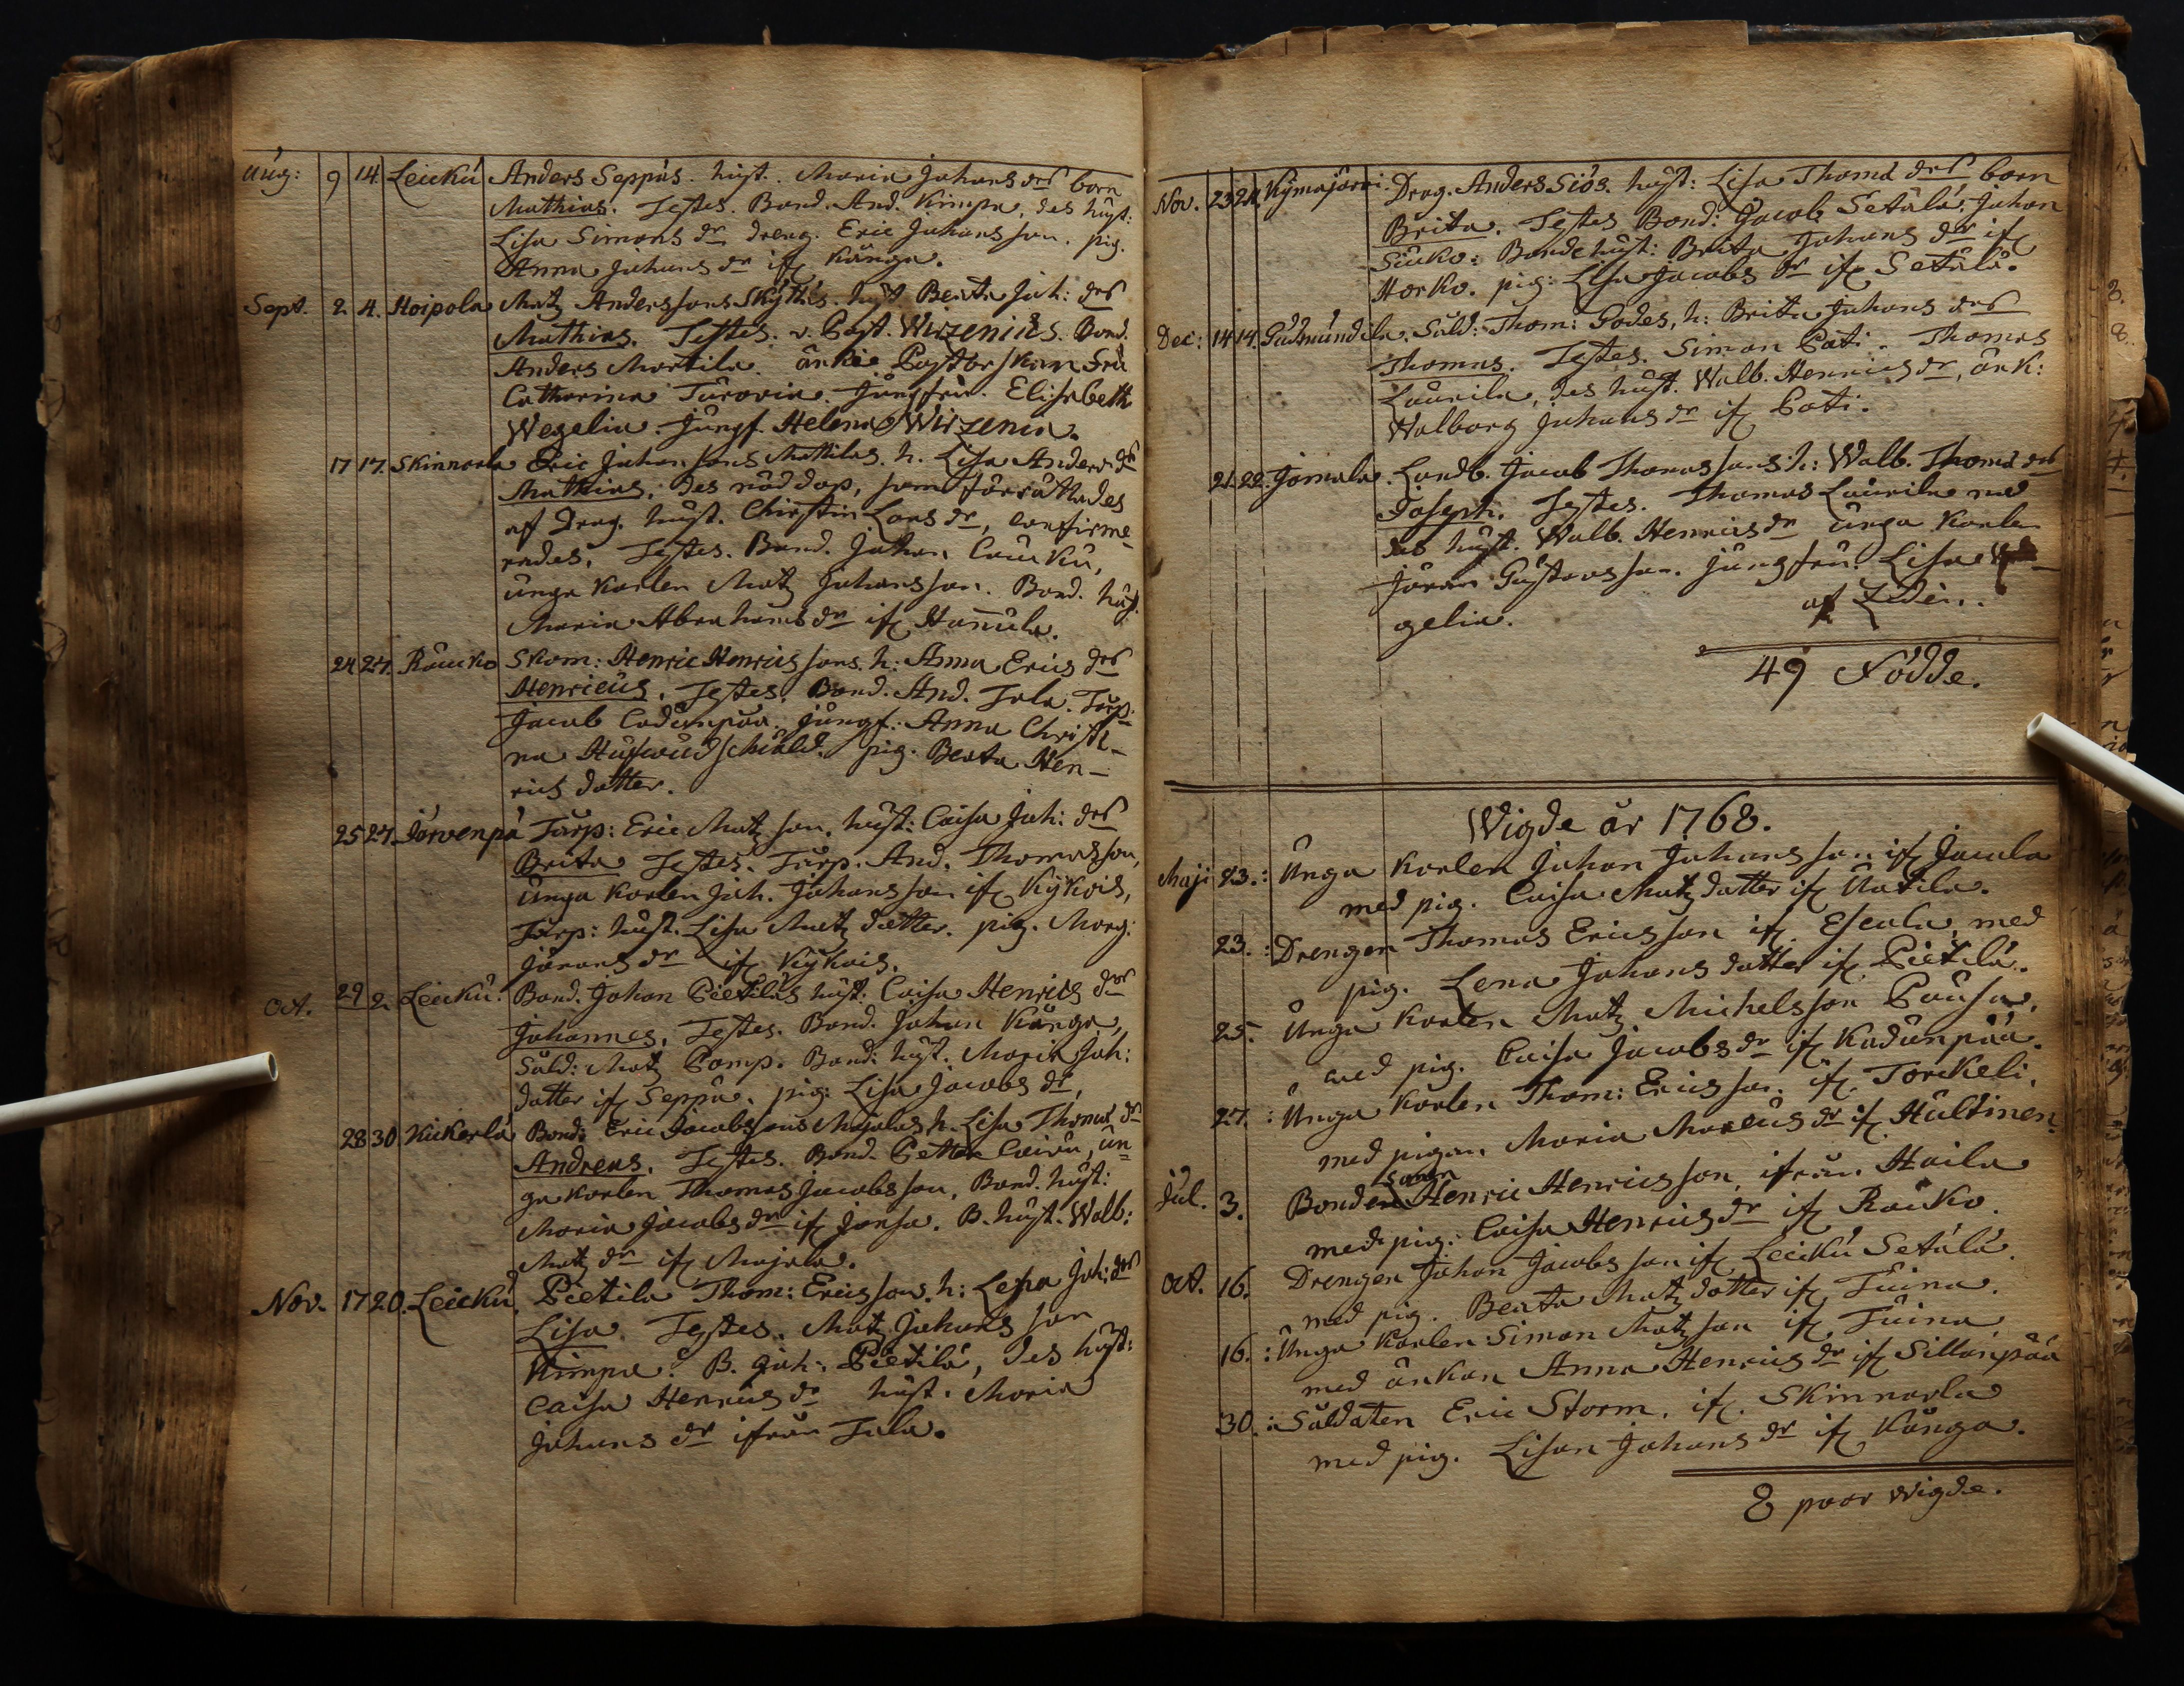 Aug: 9 14. Leickú Anders Seppäs. hust. Maria Johans drs barn
Mathias. Testes. Bond. And. Kimpa, des hust:
Lisa Simons dr. dreng. Eric Johans son. pig.
Anna Johans dr if Kånga.
Sept. 2. 4. Hoipola Matz Anderssons Skÿttés. hust Beata Joh: drs
Mathias. Testes. v. Past. Wirzenius. Bond.
Anders Martila. änkie Pastorskan Fru
Catharina Turoria. Jungfru. Elisabeth
Wegelia. Jungf. Helena Wirzenia.
17 17. Skinnarla Eric Johan sons Mattilas. h. Lisa Anders dr
Mathias, des nöddop, som förrättades
af Drag. hust. Chirstin Lars dr, confirme-
rades. Testes. Bond. Johan Cauku,
unga karlen Matz Johansson. Bond. hust.
Maria Abrahams dr if Hannula.
24 27. Raucko Skom: Henric Henrics sons. h: Anna Erics drs
Henricus. Testes. Bond. And. Tala. Torp:
Jacob Cadunpää. jungf: Anna Christi-
na pig. Beata Hen-
rics dotter.
25 27. Järvenpä Torp: Eric Matz son. hust: Caisa Joh: drs
Brita Testes. Torp. And. Thomasson,
Unga karlen Joh. Johansson if Kÿkois,
Torp: hust. Lisa Matz dotter. pig. Marg:
Jörans dr if Kÿkois.
Oct. 29 2. Leickú. Bond. Johan Pietiläs hust: Caisa Henrics drs
Johannes. Testes. Bond. Johan Kånga,
Sold: Matz Pamp. Bond: hust. Maria Joh:
dotter if Seppä. pig: Lisa Jacobs dr,
28 30 Kickerlä Bond: Eric Jacobssons Majalas h. Lisa Thomæ dr
Andreas. Testes. Bond. Petter Cairu, un=
ga karlen Thomas Jacobsson, Bond. hust:
Maria Jacobs dr if Jansa. B. hust. Walb:
Matz dr if Majala.
Nov. 17 20. Leickú. Pietila Thom: Ericssons. h: Lisa Joh: drs
Lisa. Testes. Matz Johans son
Kimpa. B. Joh: Pietilä, des hust:
Caisa Henrics dr hust. Maria
Johans dr ifrån Tala.
Nov. 23 24. Kÿmajärvi. Drag. Anders Siös. hust: Lisa Thomæ drs barn
Brita. Testes Bond: Jacob Setälä, Johan
Siuko: Bonde hust: Brita Johans dr if
Horko. pig: Lisa Jacobs dr if Setälä.
Dec: 14 14. Gudmundila. Sold: Thom: Godes, h: Brita Johans drs
Thomas. Testes. Simon Pati. Thomas
Laurila, des hust. Walb. Henrics dr, änk:
Walborg Johans dr if Pati.
21. 22. Jomala. Landb. Jacob Thomas sons h: Walb. Thomæ drs
Joseph. Testes. Thomas Laurila med
des hust. Walb. Henrics dr unga karlen
Jöran Gustavsson. jungfru. Lisa We-
gelia.
49 Födde.
Wigde år 1768.
Maji 23.: Unga karlen Johan Johansson if Jacola
med pig. Caisa Matz dotter if Uotila.
23. : Drengen Thomas Ericsson if Escola, med
pig. Lena Johans dotter if Pietilä.
25. Unga karlen Matz Michelsson Pausa,
med pig. Caisa Jacobs dr if Kadunpää.
27. : Unga karlen Thom: Ericsson. if Torckeli,
med pigan Maria Marcus dr if Hultinen.
Jul. 3. Bonden sonen Henric Henricsson, ifrån Haila
med pig. Caisa Henrics dr if Raucko.
Oct. 16. Drengen Johan Jacobsson if Leickú Setälä.
med pig. Beata Matz dotter if Tuina.
16. : Unga karlen Simon Matzson if Tuina
med änkan Anna Henrics dr if Sillanpää
30. : Soldaten Eric Storm, if. Skinnarla
med pig. Lisan Johans dr if Kånga.
8 paar wigde.